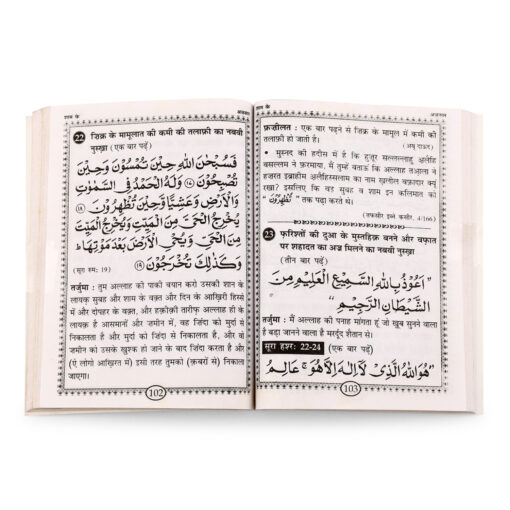 शाम के
अज़कार
22 ज़िक्र के मामूलात की कमी की तलाफ़ी का नबवी
नुस्ख़ा (एक बार पढ़ें)
فَسُبْحٰنَ اللّٰهِ حِيْنَ تُمْسُوْنَ وَحِيْنَ
تُصْبِحُوْنَ ﴿١٧﴾ وَلَهُ الْحَمْدُ فِي السَّمٰوٰتِ
وَالْاَرْضِ وَعَشِيًّا وَّحِيْنَ تُظْهِرُوْنَ ﴿١٨﴾
يُخْرِجُ الْحَيَّ مِنَ الْمَيِّتِ وَيُخْرِجُ الْمَيِّتَ
مِنَ الْحَيِّ وَيُحْيِ الْاَرْضَ بَعْدَ مَوْتِهَا ؕ
وَكَذٰلِكَ تُخْرَجُوْنَ ﴿١٩﴾
(सूरा रूम: 19)
तर्जुमा : तुम अल्लाह को पाकी बयान करो उसकी शान के
लायक़ सुबह और शाम के वक़्त और दिन के आख़िरी हिस्से
में और दोपहर के वक़्त, और हक़ीक़ी तारीफ़ अल्लाह ही
के लायक़ है आसमानों और ज़मीन में, वह ज़िंदा को मुर्दा से
निकालता है और मुर्दा को ज़िंदा से निकालता है, और वो
ज़मीन को उसके ख़ुश्क हो जाने के बाद ज़िंदा करता है और
(ऐ लोगो आख़िरत में) इसी तरह तुमको (क़बरों से) निकाला
जाएगा।
102
शाम के
अज़कार
फ़ज़ीलत : एक बार पढ़ने से ज़िक्र के मामूल में कमी की
तलाफ़ी हो जाती है।
(अबू दाऊद)
• मुस्नद की हदीस में है कि हुज़ूर सल्लल्लाहु अलैहि
वसल्लम ने फ़रमाया, मैं तुम्हें बताऊं कि अल्लाह तआला ने
हज़रत इब्राहीम अलैहिस्सलाम का नाम ख़लील वफ़ादार क्यूं
रखा? इसलिए कि वह सुबह व शाम इन कलिमात को
"تُظْهِرُوْنَ" तक पढ़ा करते थे।
(तफ़सीर इब्ने कसीर, 4/166)
23 फ़रिश्तों की दुआ के मुस्तहिक़ बनने और वफ़ात
पर शहादत का अज्र मिलने का नबवी नुस्ख़ा
(तीन बार पढ़ें)
"اَعُوْذُ بِاللّٰهِ السَّمِيْعِ الْعَلِيْمِ مِنَ
الشَّيْطَانِ الرَّجِيْمِ"
तर्जुमा : मैं अल्लाह की पनाह मांगता हूं जो ख़ूब सुनने वाला
है बड़ा जानने वाला है मर्दूद शैतान से।
सूरा हश्र: 22-24 (एक बार पढ़ें)
"هُوَ اللّٰهُ الَّذِيْ لَآ اِلٰهَ اِلَّا هُوَ ۚ عَالِمُ
103